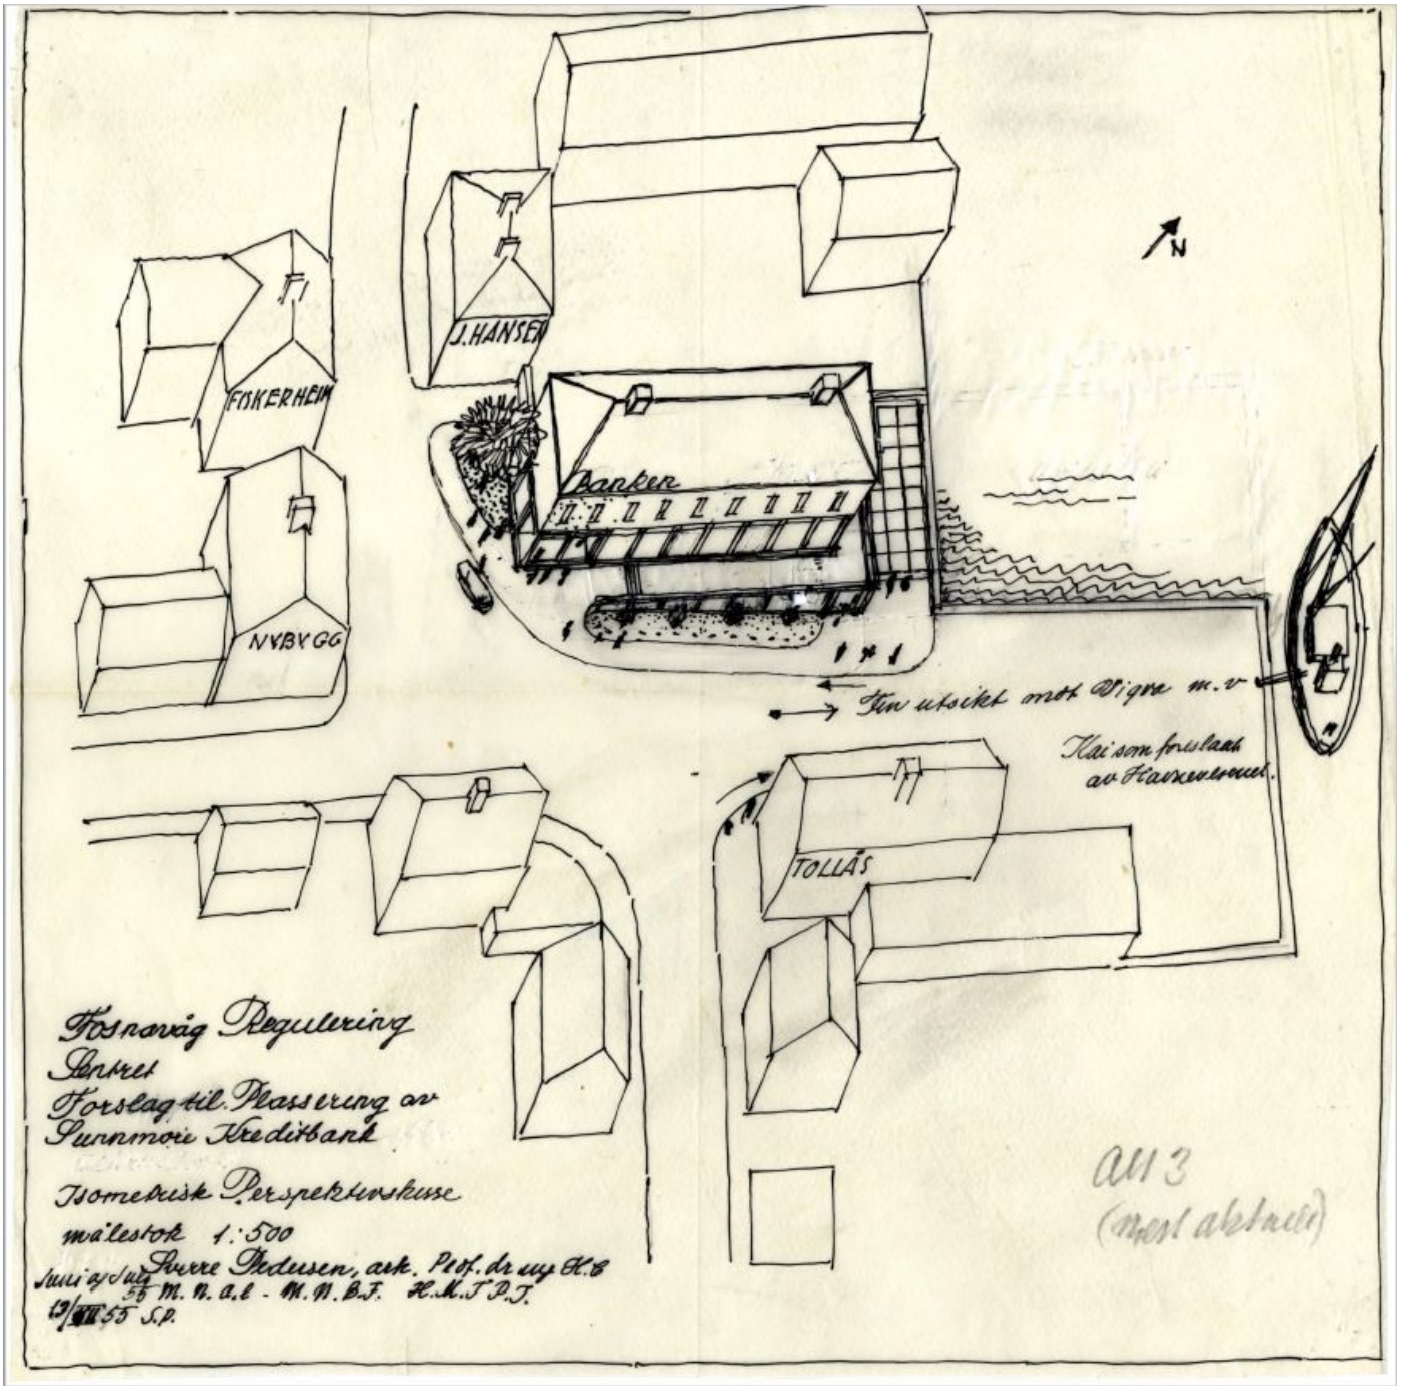 N
J. HANSEN
FISKERHEIM
Banken
NYBYGG
Fin utsikt mot Vigra m.v
Kai som foreslaat
av Havnevesenet.
TOLLÅS
Fosnavåg Regulering
Sentret
Forslag til Plassering av
Sunnmøre Kreditbank
Isometrisk Perspektivskisse
målestok 1:500
Juni og Juli Sverre Pedersen, ark. Prof. dr ing H.C
55 M.N.A.L - M.N.B.F. H.M.T.P.I.
13/VII 55 S.P.
Alt 3
(mest aktuell)